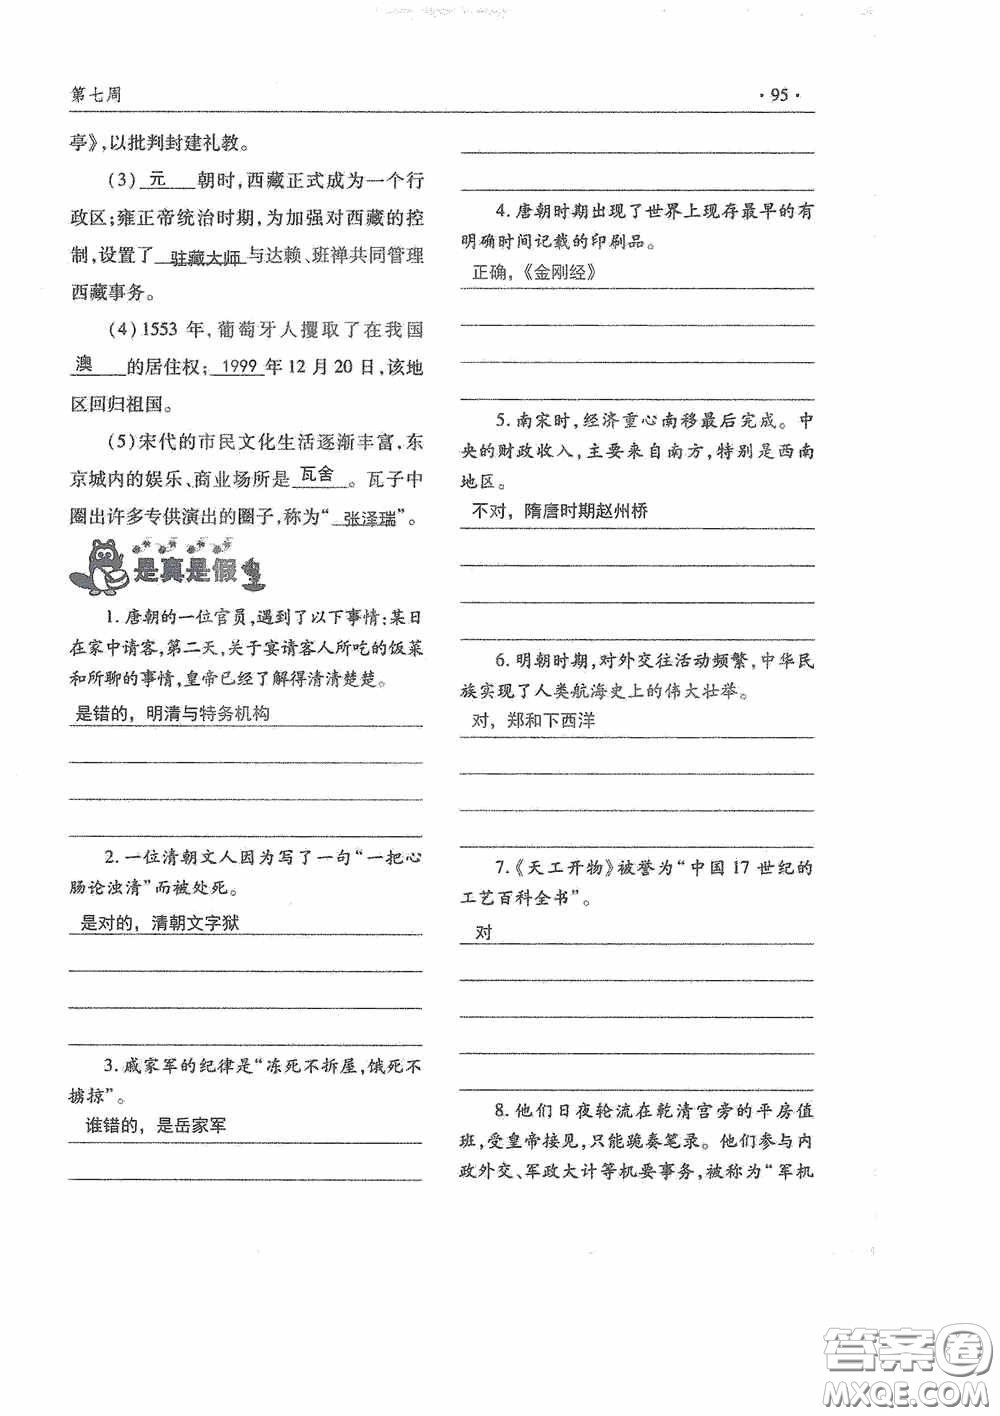 第七周
·95·
亭》,以批判封建礼教。
(3) 元 朝时,西藏正式成为一个行
政区;雍正帝统治时期,为加强对西藏的控
制,设置了 驻藏大师 与达赖、班禅共同管理
西藏事务。
(4)1553 年,葡萄牙人攫取了在我国
澳 的居住权; 1999 年 12 月 20 日,该地
区回归祖国。
(5)宋代的市民文化生活逐渐丰富,东
京城内的娱乐、商业场所是 瓦舍 。瓦子中
圈出许多专供演出的圈子,称为“ 张泽瑞 ”。
是真是假
1. 唐朝的一位官员,遇到了以下事情:某日
在家中请客,第二天,关于宴请客人所吃的饭菜
和所聊的事情,皇帝已经了解得清清楚楚。
是错的，明清与特务机构
2. 一位清朝文人因为写了一句“一把心
肠论浊清”而被处死。
是对的，清朝文字狱
3. 戚家军的纪律是“冻死不拆屋,饿死不
掳掠”。
谁错的，是岳家军
4. 唐朝时期出现了世界上现存最早的有
明确时间记载的印刷品。
正确,《金刚经》
5. 南宋时,经济重心南移最后完成。中
央的财政收入,主要来自南方,特别是西南
地区。
不对，隋唐时期赵州桥
6. 明朝时期,对外交往活动频繁,中华民
族实现了人类航海史上的伟大壮举。
对，郑和下西洋
7.《天工开物》被誉为“中国 17 世纪的
工艺百科全书”。
对
8. 他们日夜轮流在乾清宫旁的平房值
班,受皇帝接见,只能跪奏笔录。他们参与内
政外交、军政大计等机要事务,被称为“军机
答案圈
MXQE.COM